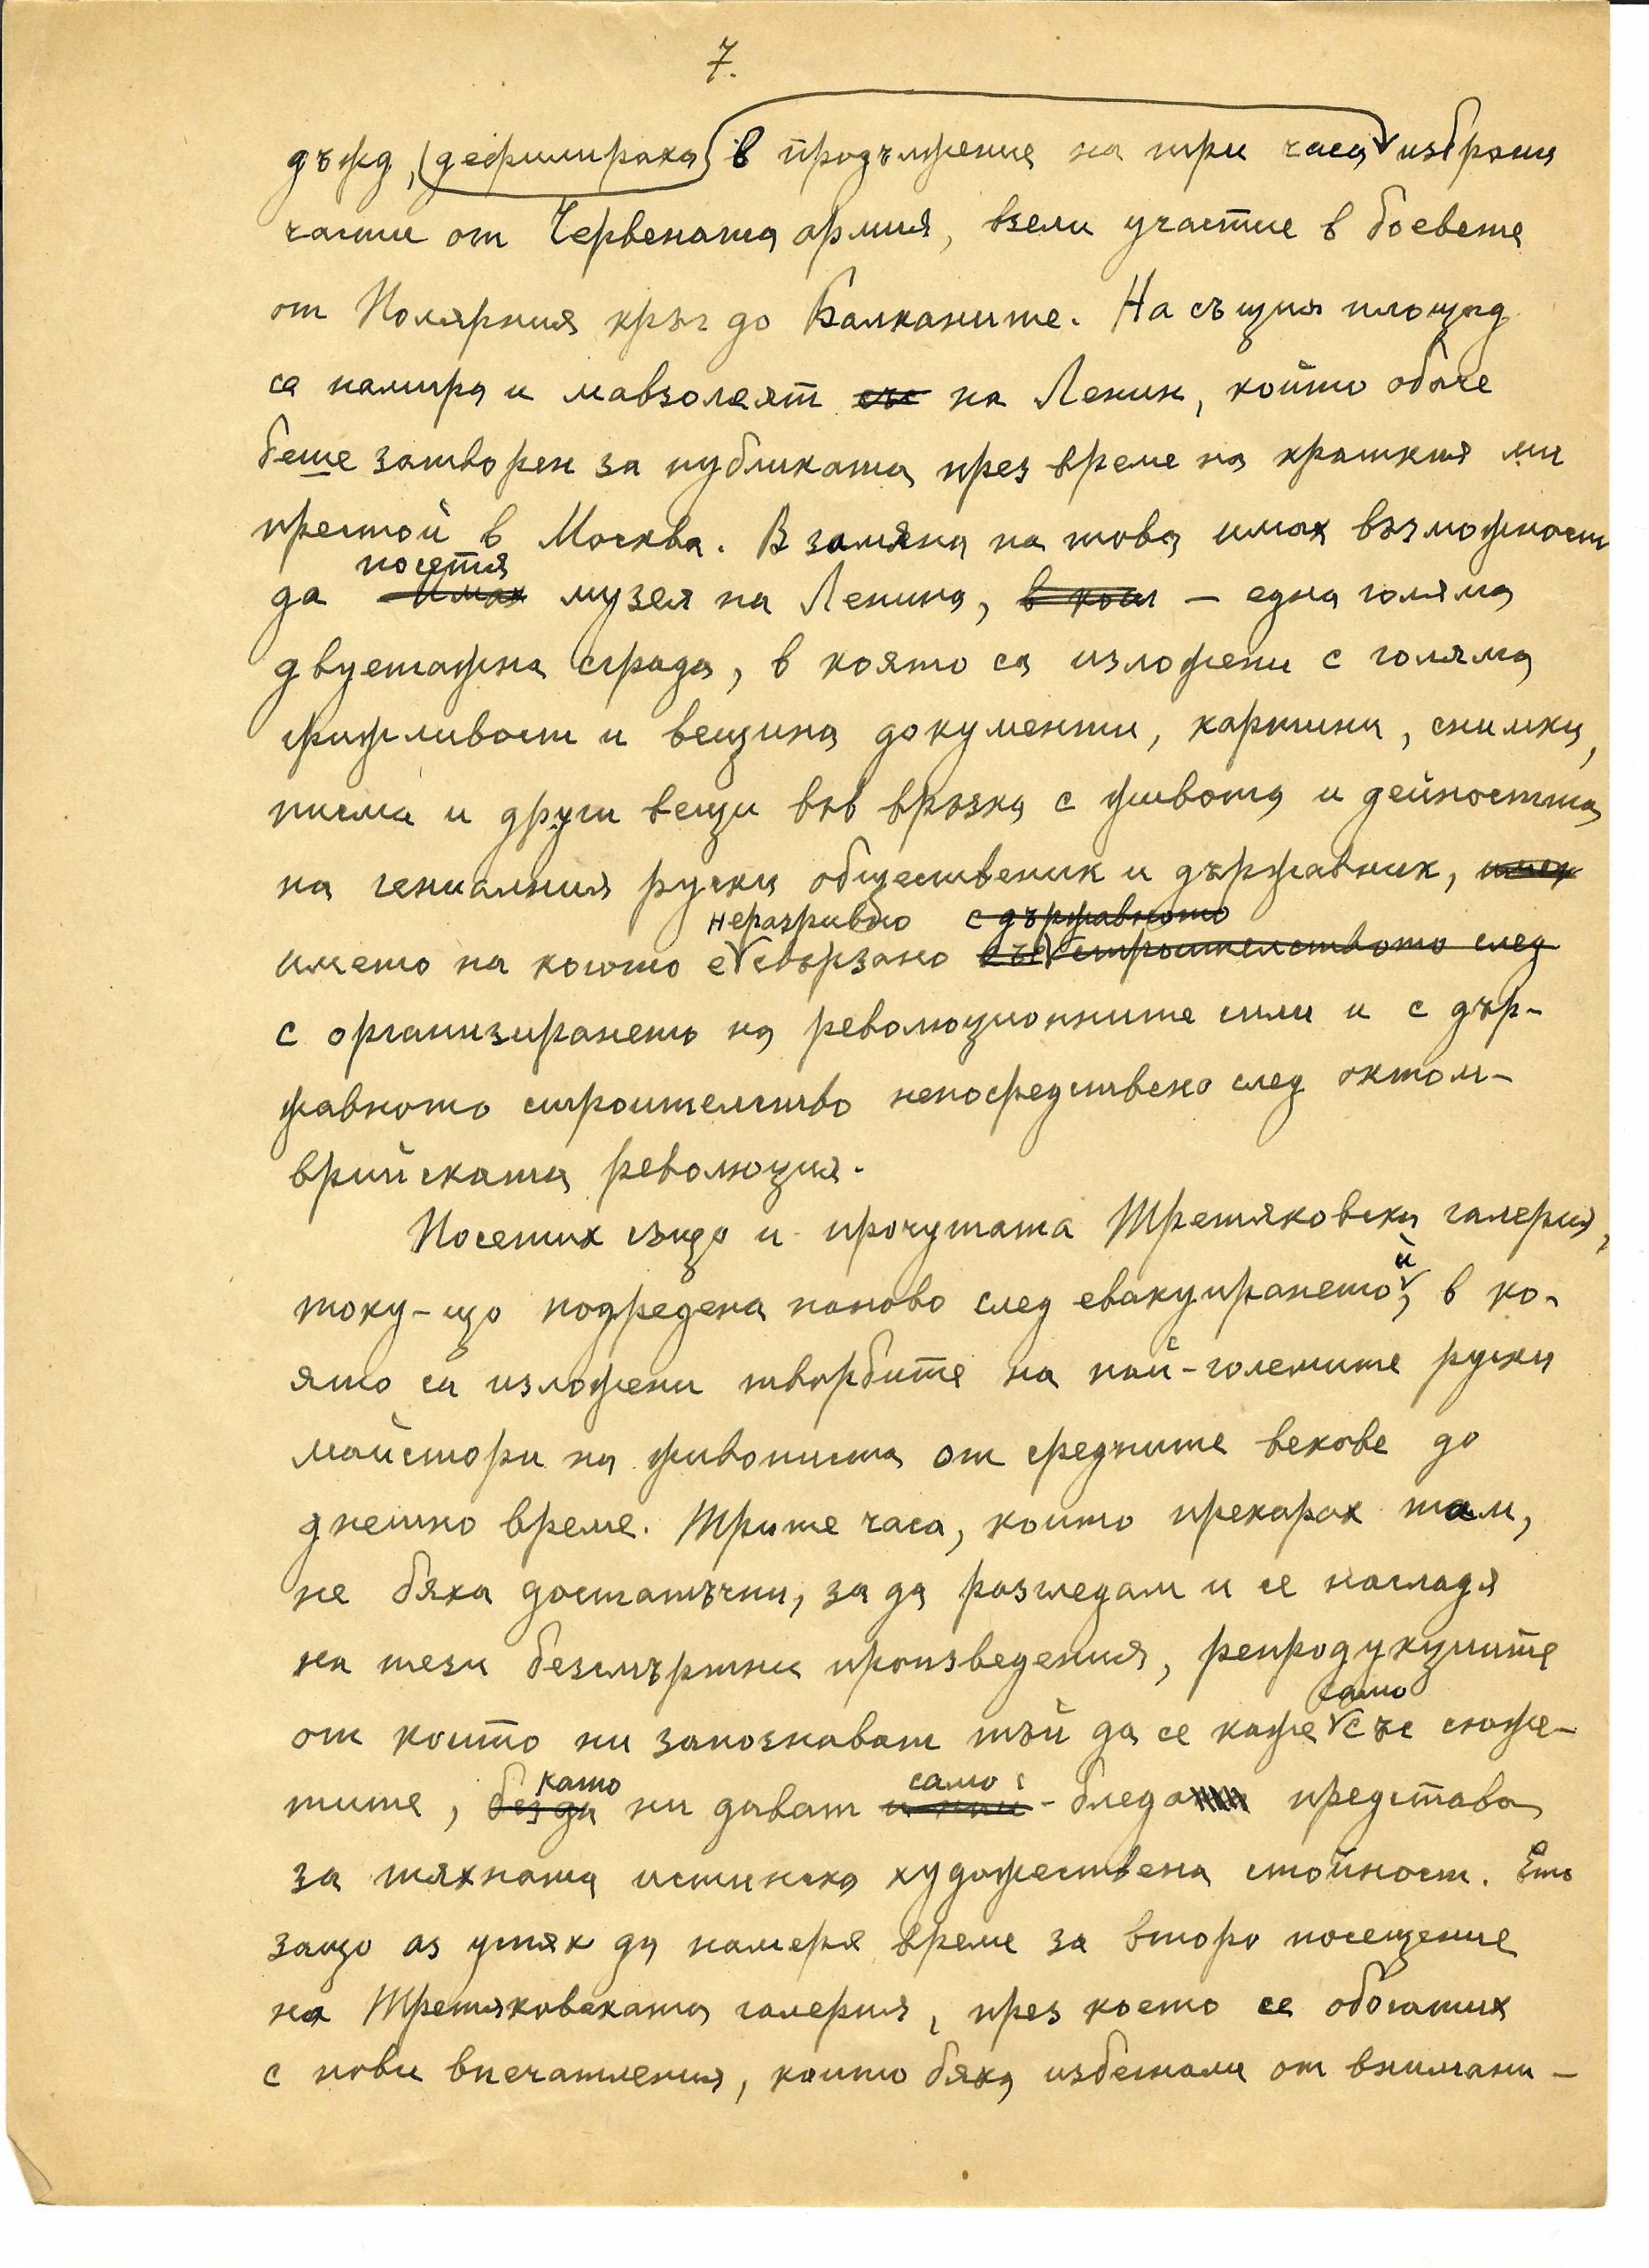 7.
дъжд, дефилираха в продължение на три часа избрани
части от Червената армия, взели участие в боевете
от Полярния кръг до Балканите. На същия площад
се намира и мавзолеят със на Ленин, който обаче
беше затворен за публиката през време на краткия ми
престой в Москва. В замяна на това имах възможност
посетя
да имах музея на Ленина, в кой – една голяма
двуетажна сграда, в която са изложени с голяма
грижливост и вещина документи, картини, снимки,
писма и други вещи във връзка с живота и дейността
на гениалния руски общественик и държавник,
неразривно с държавното
името на когото е свързано със строителството след
с организирането на революционните сили и с дър-
жавното строителство непосредствено след октом-
врийската революция.
Посетих също и прочутата Третяковска галерия,
ѝ
току-що подредена наново след евакуирането, в ко-
ято са изложени творбите на най-големите руски
майстори на живописта от средните векове до
днешно време. Трите часа, които прекарах там,
не бяха достатъчни, за да разгледам и се насладя
на тези безсмъртни произведения, репродукциите
само
от които ни запознават тъй да се каже със сюже-
като само
тите, без да ни дават и най-бледа представа
за тяхната истинска художествена стойност. Ето
защо аз успях да намеря време за второ посещение
на Третяковската галерия, през което се обогатих
с нови впечатления, които бяха избегнали от внимани-